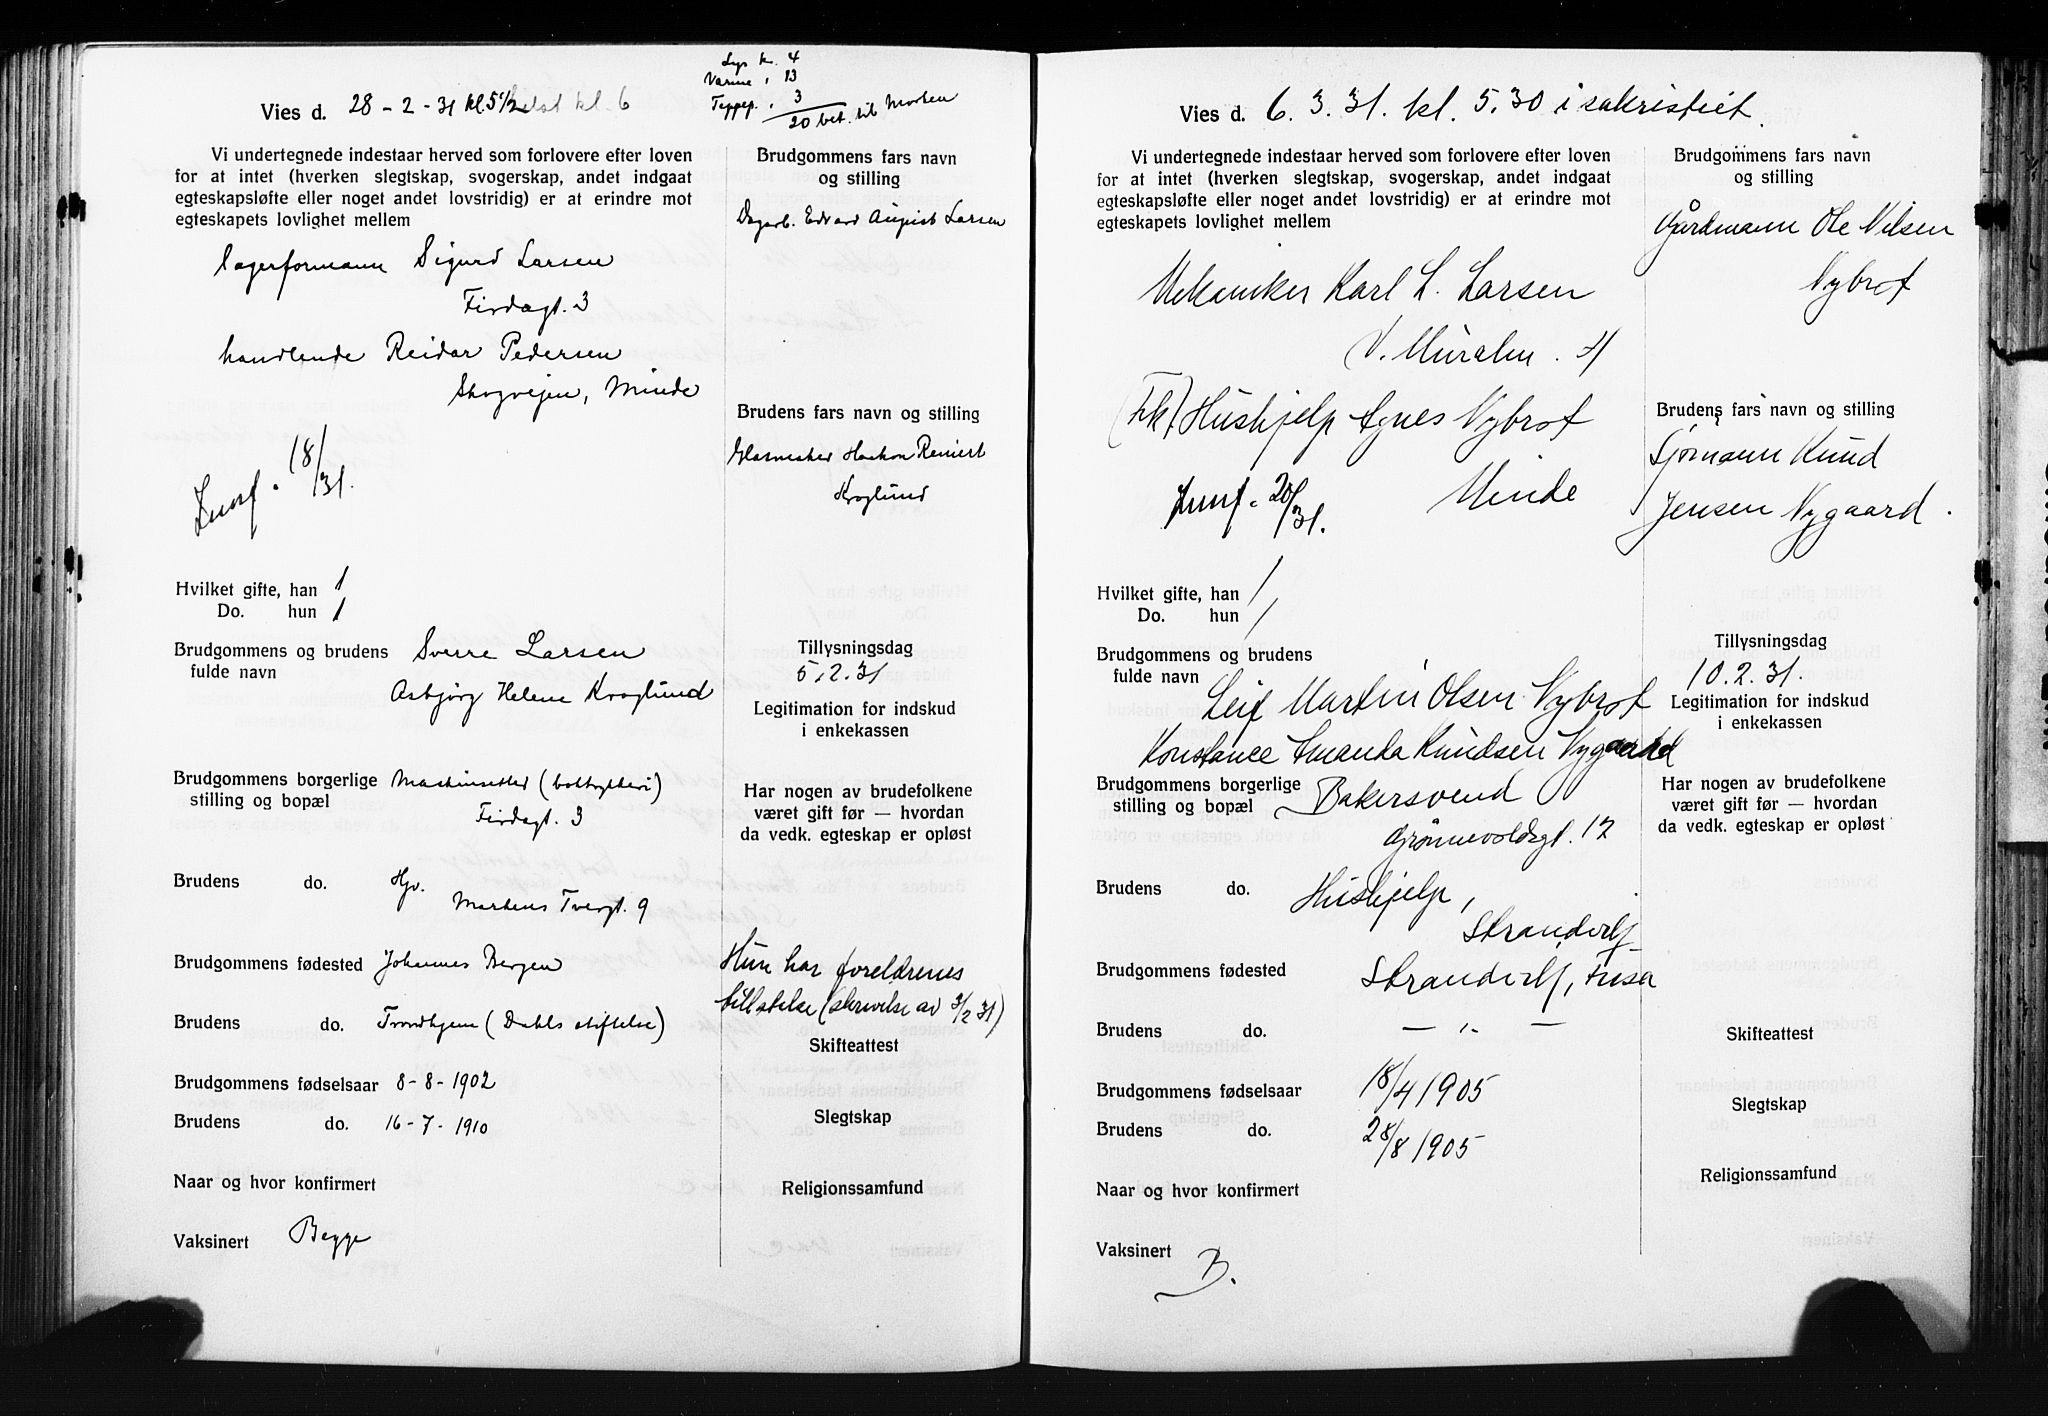 Lys kr. 4
Varme " 13
Teppep. " 3
20 bet. til Morten
Vies d. 28 - 2 - 31 kl 5 1/2 helst kl. 6
Vi undertegnede indestaar herved som forlovere efter loven
for at intet (hverken slegtskap, svogerskap, andet indgaat
egteskapsløfte eller noget andet lovstridig) er at erindre mot
egteskapets lovlighet mellem
lagerformann Sigurd Larsen
Firdagt. 3
handlende Reidar Pedersen
Skogvejen, Minde
18/31.
Hvilket gifte, han 1
Do. hun 1
Brudgommens og brudens
fulde navn
Sverre Larsen
Asbjørg Helene Kroglund
Brudgommens borgerlige
stilling og bopæl
Maskinsetter (boktrykkeri)
Firdagt. 3
Brudens do. Hjv.
Martens Tvergt. 9
Brudgommens fødested Johannes Bergen
Brudens do. Trondhjem (Dahls stiftelse)
Brudgommens fødselsaar 8-8-1902
Brudens do. 16-7-1910
Naar og hvor konfirmert
Vaksinert Begge
Brudgommens fars navn
og stilling
Dagarb. Edvard August Larsen
Brudens fars navn og stilling
Glasmester Haakon Reinert
Kroglund
Tillysningsdag
5.2.31
Legitimation for indskud
i enkekassen
Har nogen av brudefolkene
været gift før — hvordan
da vedk. egteskap er opløst
Hun har foreldrenes
tillatelse (skrivelse av 3/2 31)
Skifteattest
Slegtskap
Religionssamfund
Vies d. 6. 3. 31. kl. 5.30 i sakristiet.
Vi undertegnede indestaar herved som forlovere efter loven
for at intet (hverken slegtskap, svogerskap, andet indgaat
egteskapsløfte eller noget andet lovstridig) er at erindre mot
egteskapets lovlighet mellem
Mekaniker Karl L. Larsen
V. Muralm. 4
(Frk) Hushjelp Agnes Nybrot
Minde
20/31.
Hvilket gifte, han 1
Do. hun 1
Brudgommens og brudens
fulde navn
Leif Martin Olsen Nybrot
Konstance Amanda Knudsen Nygaard
Brudgommens borgerlige
stilling og bopæl
Bakersvend
Grønnevoldsgt. 12
Brudens do. Hushjelp,
Strandvik
Brudgommens fødested Strandvik, Fusa
Brudens do. — " —
Brudgommens fødselsaar 18/4 1905
Brudens do. 28/8 1905
Naar og hvor konfirmert
Vaksinert B.
Brudgommens fars navn
og stilling
Gårdmann Ole Nilsen
Nybrot
Brudens fars navn og stilling
Sjømann Knud
Jensen Nygaard.
Tillysningsdag
10.2.31.
Legitimation for indskud
i enkekassen
Har nogen av brudefolkene
været gift før — hvordan
da vedk. egteskap er opløst
Skifteattest
Slegtskap
Religionssamfund